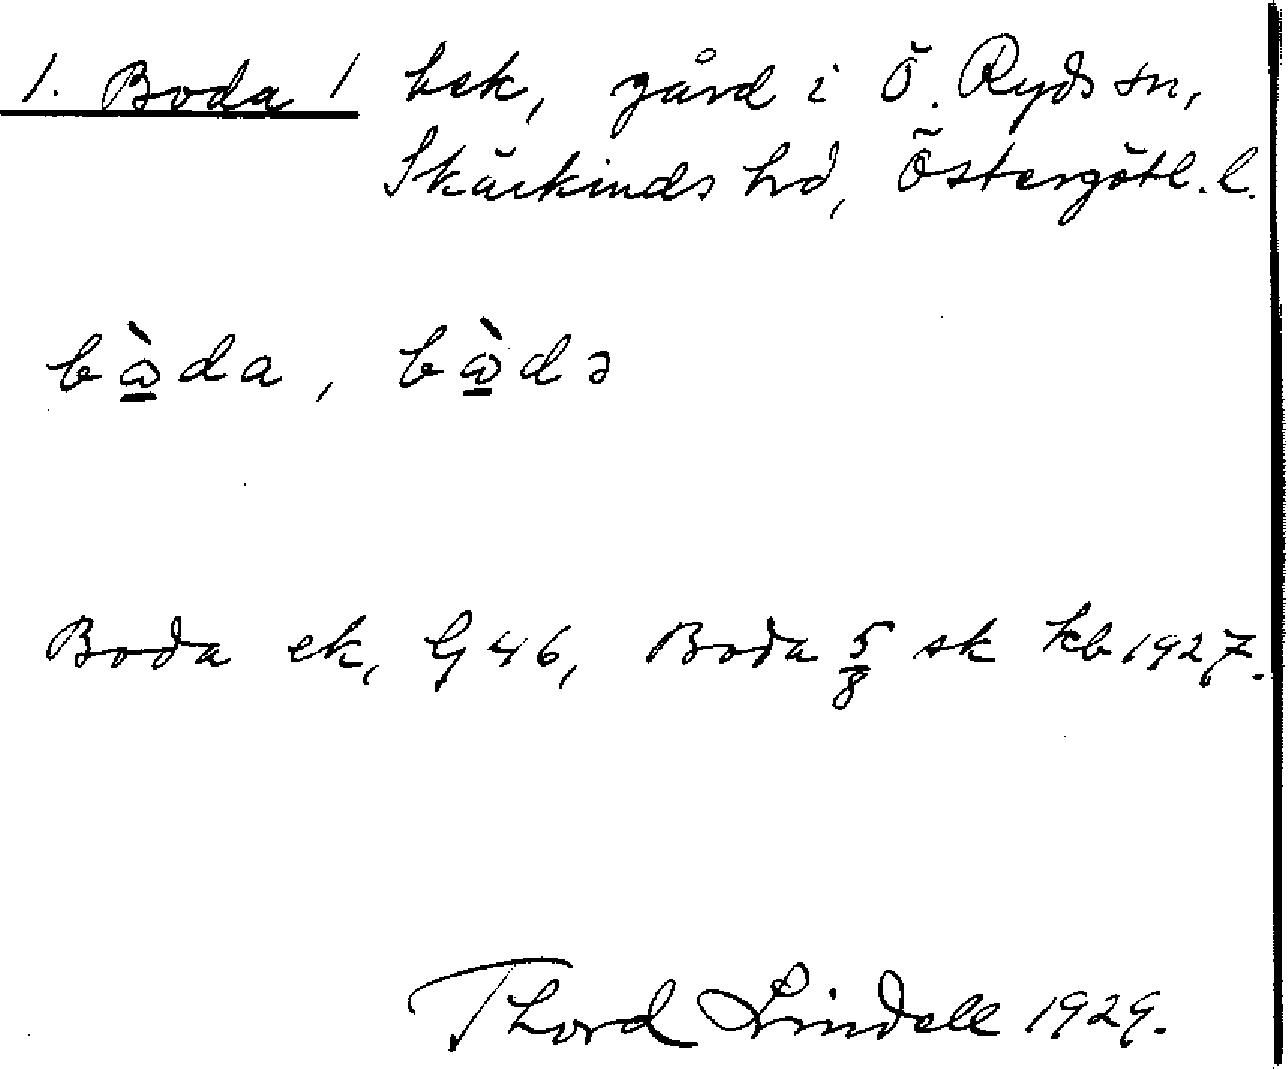 1. Boda 1 bsk, gård i Ö. Ryds sn,
Skärkinds hd, Östergötl. l.
bὼ̠da, bὼ̠də
Boda ek, G 46, Boda 5/8 sk kb 1927.
Thord Lindell 1929.